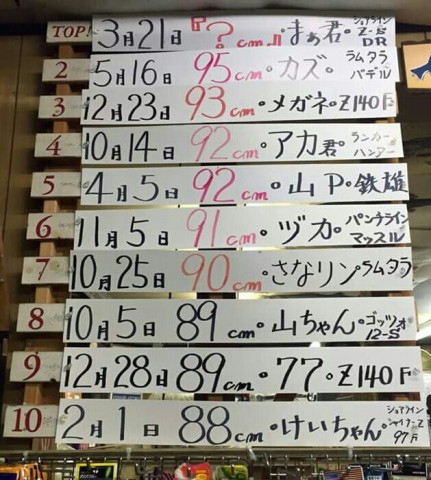 TOP! 3月21日『?cm』・まぁ君・ショアライン Z-S DR
2 5月16日 95cm・カズ・ラムタラ バデル
3 12月23日 93cm・メガネ・Z140F
4 10月14日 92cm・アカ君・ランカーハンター
5 4月5日 92cm・山P・鉄雄
6 11月5日 91cm・ヅカ・パンチライン マッスル
7 10月25日 90cm・さなリン・ラムタラ
8 10月5日 89cm・山ちゃん・ゴッツォ 12-S
9 12月28日 89cm・77・Z140F
10 2月1日 88cm・けいちゃん・ショアライン シャイナーZ 97F